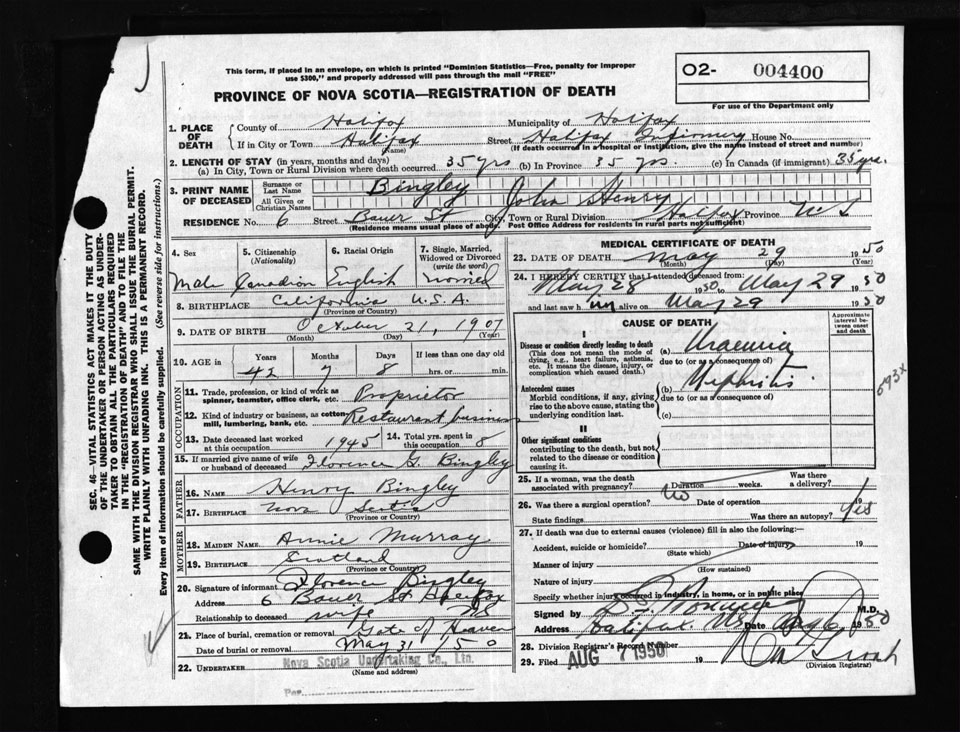 This form, if placed in an envelope, on which is printed "Dominion Statistics—Free, penalty for improper
use $300," and properly addressed will pass through the mail "FREE"
O2- 004400
For use of the Department only
PROVINCE OF NOVA SCOTIA—REGISTRATION OF DEATH
1. PLACE OF DEATH
County of Halifax Municipality of Halifax
If in City or Town Halifax Street Halifax Infirmary House No.
(Name) (If death occurred in a hospital or institution, give the name instead of street and number)
2. LENGTH OF STAY (in years, months and days)
(a) In City, Town or Rural Division where death occurred 35 yrs (b) In Province 35 yrs. (c) In Canada (if immigrant) 35 yrs.
3. PRINT NAME OF DECEASED
Surname or Last Name Bingley
All Given or Christian Names John Henry
RESIDENCE No. 6 Street Bauer St City, Town or Rural Division Halifax Province N S
(Residence means usual place of abode. Post Office Address for residents in rural parts not sufficient)
4. Sex 5. Citizenship (Nationality) 6. Racial Origin 7. Single, Married, Widowed or Divorced (write the word)
Male Canadian English
8. BIRTHPLACE California U.S.A.
(Province or Country)
9. DATE OF BIRTH October 21, 1907
(Month) (Day) (Year)
10. AGE in Years Months Days If less than one day old
42 7 8 hrs. or min.
OCCUPATION
11. Trade, profession, or kind of work as spinner, teamster, office clerk, etc. Proprietor
12. Kind of industry or business, as cotton mill, lumbering, bank, etc. Restaurant business
13. Date deceased last worked at this occupation 1945 14. Total yrs. spent in this occupation 8
15. If married give name of wife or husband of deceased Florence G. Bingley
FATHER
16. NAME Henry Bingley
17. BIRTHPLACE Nova Scotia
(Province or Country)
MOTHER
18. MAIDEN NAME Annie Murray
19. BIRTHPLACE Scotland
(Province or Country)
20. Signature of informant Florence Bingley
Address 6 Bauer St Halifax
Relationship to deceased wife NS
21. Place of burial, cremation or removal Gate of Heaven
Date of burial or removal May 31 / 50
22. UNDERTAKER Nova Scotia Undertaking Co., Lim.
(Name and address)
Per
MEDICAL CERTIFICATE OF DEATH
23. DATE OF DEATH May 29 1950
(Month) (Day) (Year)
24. I HEREBY CERTIFY that I attended deceased from:
May 28 1950 to May 29 1950
and last saw him alive on May 29 1950
CAUSE OF DEATH
Approximate interval between onset and death
I
Disease or condition directly leading to death (a) Uraemia
(This does not mean the mode of dying, e.g., heart failure, asthenia, etc. It means the disease, injury, or complication which caused death.)
due to (or as a consequence of)
Antecedent causes (b) Nephritis
Morbid conditions, if any, giving rise to the above cause, stating the underlying condition last.
due to (or as a consequence of)
(c)
593x
II
Other significant conditions
contributing to the death, but not related to the disease or condition causing it.
25. If a woman, was the death associated with pregnancy? Duration weeks. Was there a delivery?
26. Was there a surgical operation? No Date of operation 19
State findings Was there an autopsy? Yes
27. If death was due to external causes (violence) fill in also the following:—
Accident, suicide or homicide? Date of injury 19
(State which)
Manner of injury
(How sustained)
Nature of injury
Specify whether injury occurred in industry, in home, or in public place
Signed by M.D.
Address Halifax. NS Date 1950
28. Division Registrar's Record Number
29. Filed AUG 7 1950 19
(Division Registrar)
SEC. 46—VITAL STATISTICS ACT MAKES IT THE DUTY
OF THE UNDERTAKER OR PERSON ACTING AS UNDER-
TAKER TO OBTAIN ALL THE PARTICULARS REQUIRED
IN THE "REGISTRATION OF DEATH" AND TO FILE THE
SAME WITH THE DIVISION REGISTRAR WHO SHALL ISSUE THE BURIAL PERMIT.
WRITE PLAINLY WITH UNFADING INK. THIS IS A PERMANENT RECORD.
Every item of information should be carefully supplied. (See reverse side for instructions.)